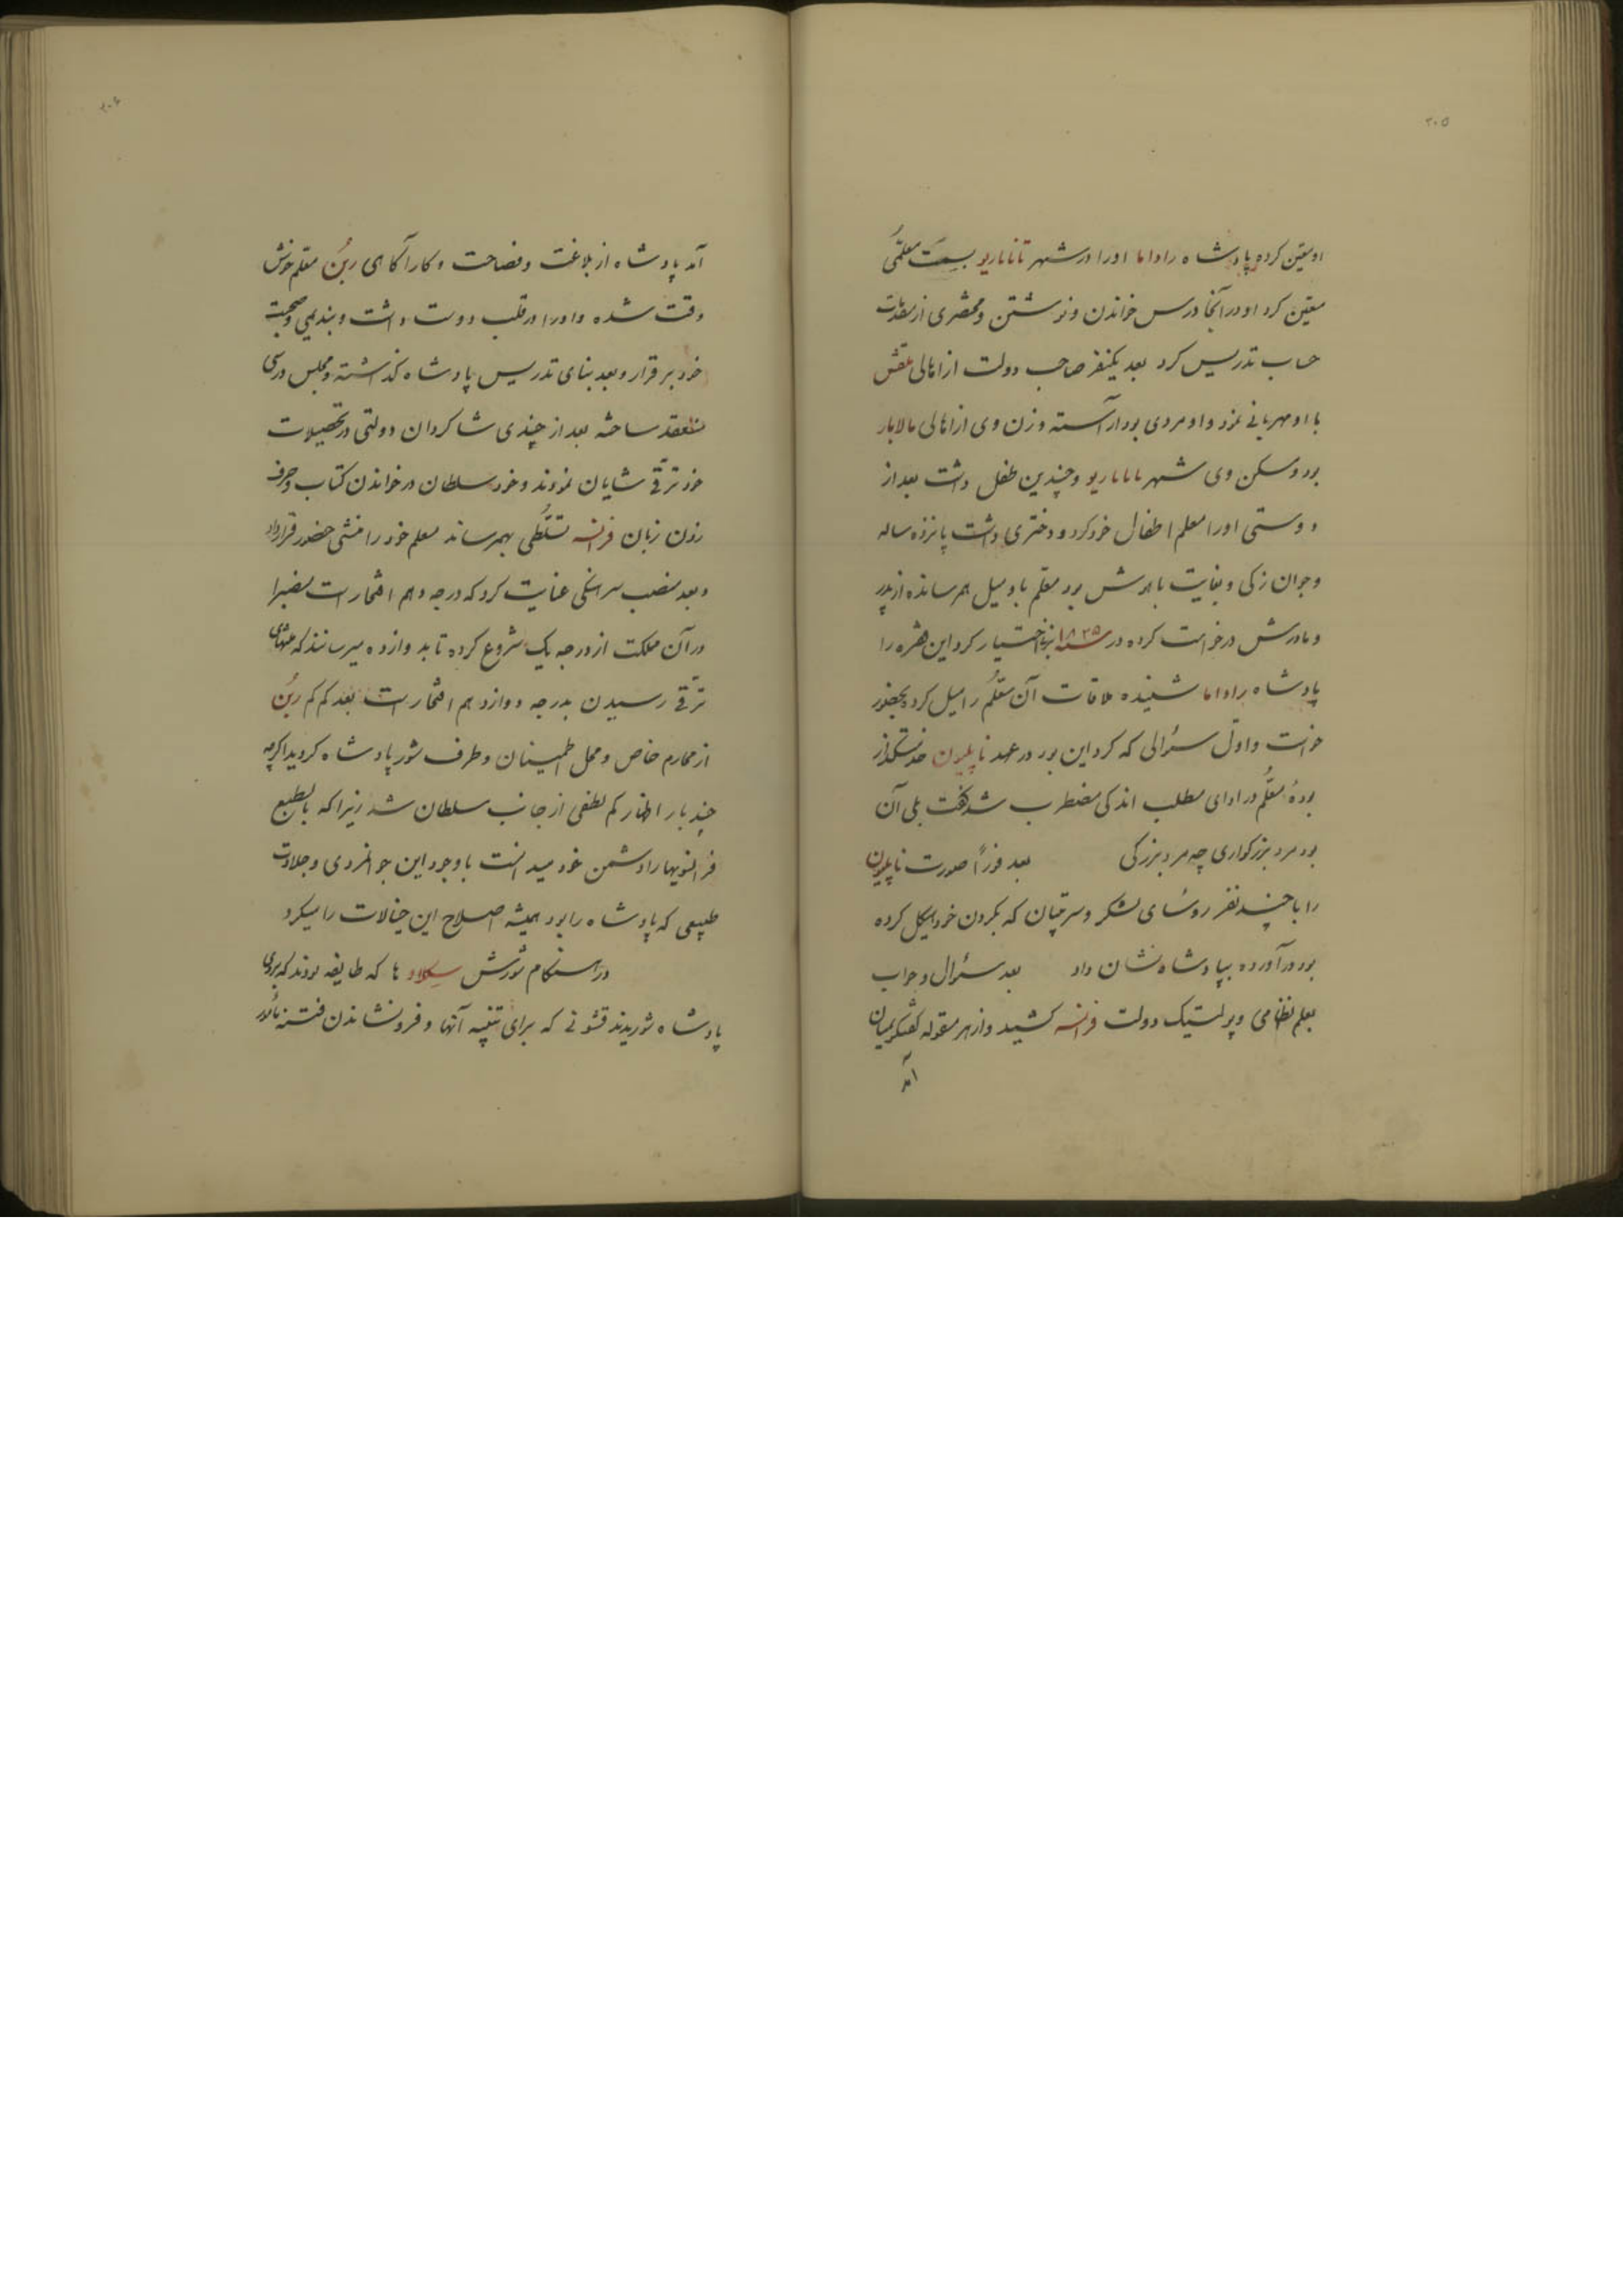 ۲۰۵
او معین کرده پادشاه راداما او را در شهر تاناناریو بسمت معلمی
معین کرد او در آنجا درس خواندن و نوشتن و مختصری از مقدمات
حساب تدریس کرد بعد یکنفر صاحب دولت از اهالی
با او مهربانی نمود و او مردی بود آراسته و زن وی از اهالی مالابار
بود و مسکن وی شهر تاناناریو و چندین طفل داشت بعد از
دوستی او را معلم اطفال خود کرد و دختری داشت پانزده ساله
و جوان زکی و بغایت باهوش بود معلم باو میل بهمرسانده از پدر
و مادرش درخواست کرده در سنه ۱۸۲۵ بزنی اختیار کرد این فقره را
پادشاه راداما شنیده ملاقات آن معلم را میل کرد بحضور
خواست و اول سئوالی که کرد این بود در عهد ناپلیون خدمتگذار
بوده معلم در ادای مطلب اندکی مضطرب شد گفت بلی آن
بود مرد بزرگواری چه مرد بزرگی بعد فوراً صورت ناپلیون
را با چند نفر رؤسای لشکر و سرتیپان که بگردن خود هیکل کرده
بود درآورده بپادشاه نشان داد بعد سئوال و جواب
بعلم نظامی و پولتیک دولت فرانسه کشید و از هر مقوله گفتگو بمیان
آمد
۲۰۶
آمد پادشاه از بلاغت و فصاحت و کارآگاهی ربن معلم خوش
وقت شده و او را در قلب دوست داشت و بندیمی و صحبت
خود برقرار و بعد بنای تدریس پادشاه گذاشته و مجلس درسی
منعقد ساخته بعد از چندی شاگردان دولتی در تحصیلات
خود ترقی شایان نمودند و خود سلطان در خواندن کتاب و حرف
زدن زبان فرانسه تسلطی بهمرساند معلم خود را منشی حضور قرار داد
و بعد منصب سرهنگی عنایت کرد که درجه دهم افتخار است
در آن مملکت از درجه یک شروع کرده تا بدوازده میرسانند که منتهای
ترقی رسیدن بدرجه دوازدهم افتخار است بعد کم کم ربن
از محارم خاص و محل اطمینان و طرف شور پادشاه گردید اگرچه
چند بار اظهار کم لطفی از جانب سلطان شد زیرا که بالطبع
فرانسویها را دشمن خود میدانست با وجود این جوانمردی و جلادت
طبیعی که پادشاه را بود همیشه اصلاح این خیالات را میکرد
در هنگام شورش سکلاو ها که طایفه بودند که بر
پادشاه شوریدند قشونی که برای تنبیه آنها و فرونشاندن فتنه مأمور